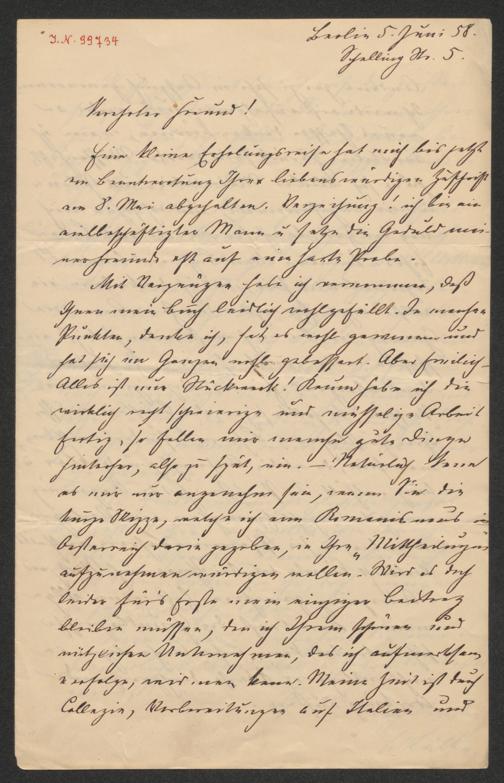 I.N. 99734
Berlin 5. Juni 58.
Schelling Str. 5.
Verehrter Freund!
Eine kleine Erholungsreise hat mich bis jetzt
an Beantwortung Ihrer liebenswürdigen Zuschrift
am 8. Mai abgehalten. Verzeihung! ich bin ein
vielbeschäftigter Mann u setze die Geduld mei-
ner Freunde oft auf eine harte Probe.
Mit Vergnügen habe ich vernommen, daß
Ihnen mein Buch leidlich wohlgefällt. In manchen
Punkten, denke ich, hat es wohl gewonnen und
hat sich im Ganzen wohl gebessert. Aber freilich
Alles ist nur Stückwerk! Kaum habe ich die
wirklich recht schwierige und mühselige Arbeit
fertig, so fallen mir manche gute Dinge
hinterher, also zu spät, ein. – Natürlich kann
es mir nur angenehm sein, wenn Sie die
kurze Skizze, welche ich vom Romanismus in
Oesterreich darin gegeben, in Ihre "Mittheilungen
aufzunehmen würdigen wollen. Wird es doch
leider für's Erste mein einziger Beitrag
bleiben müssen, den ich Ihrem schönen und
nützlichen Unternehmen, das ich aufmerksam
verfolge, widmen kann. Meine Zeit ist durch
Collegia, Vorbereitungen auf Italien und